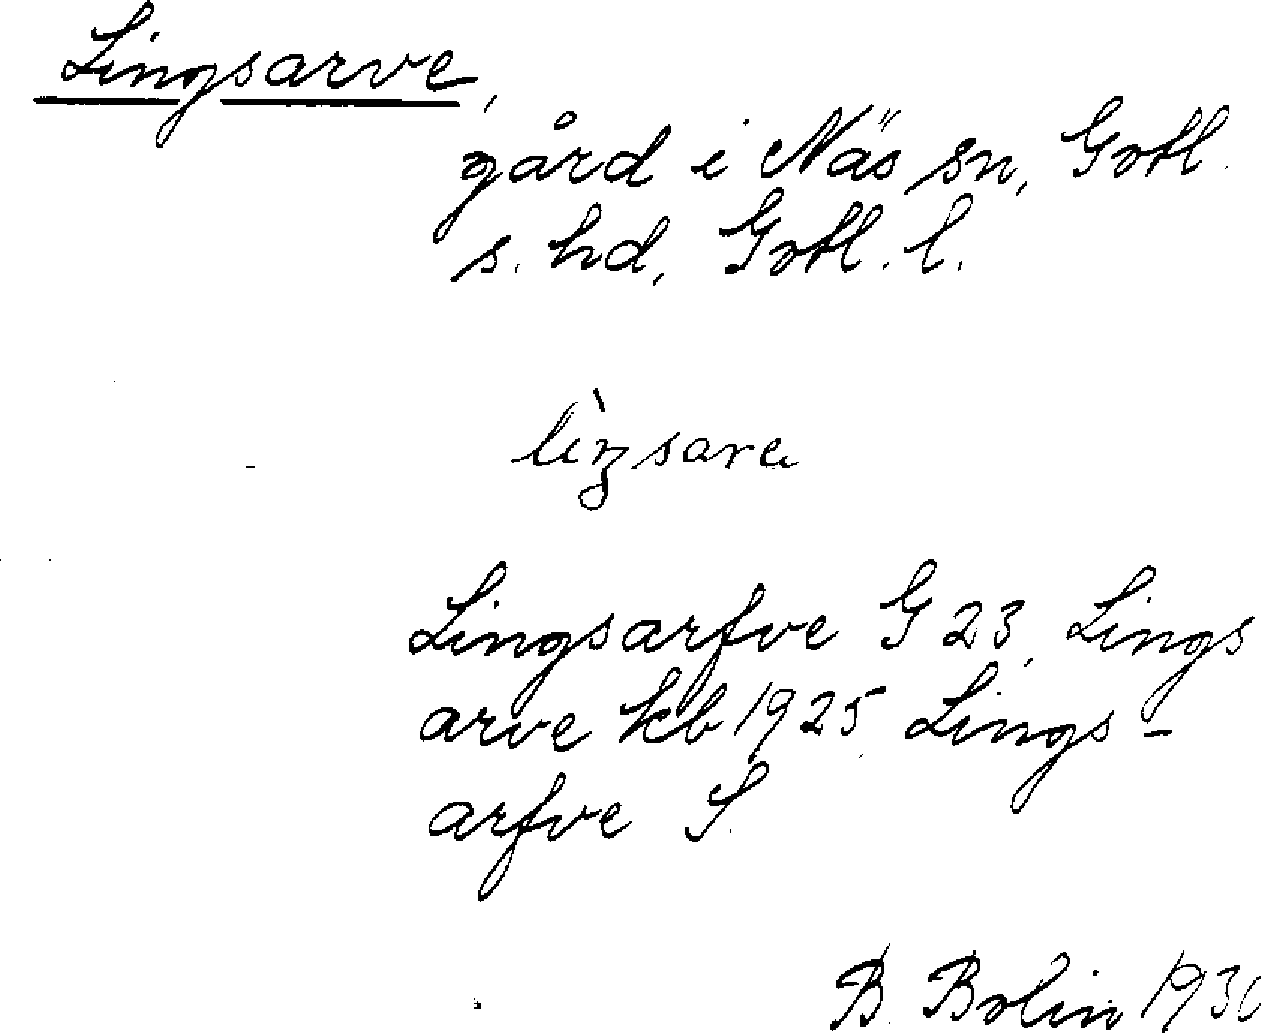 Lingsarve,
gård i Näs sn, Gotl.
s. hd, Gotl. l.
lìŋsara
Lingsarfve G 23, Lings
arve kb 1925, Lings-
arfve S.
B. Bolin 1930